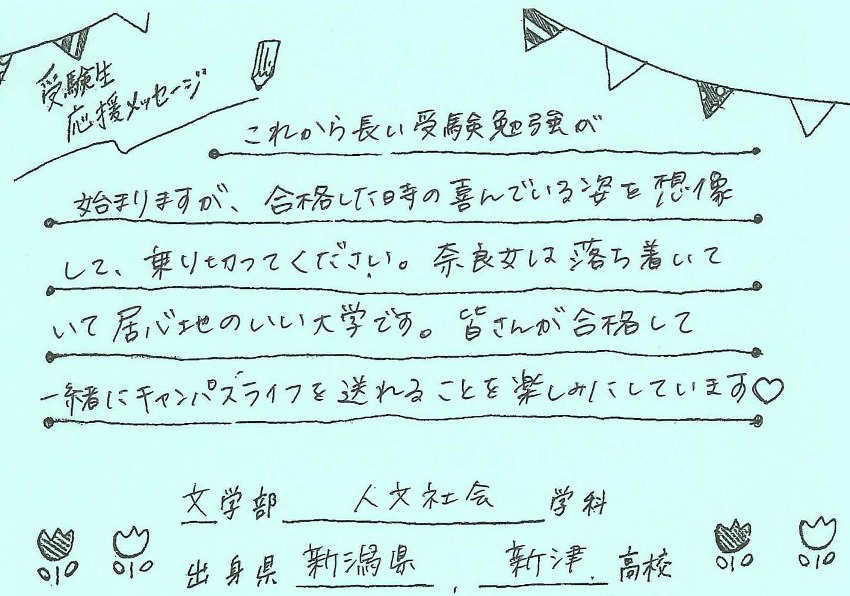 受験生
応援メッセージ
これから長い受験勉強が
始まりますが、合格した時の喜んでいる姿を想像
して、乗り切ってください。奈良女は落ち着いて
いて居心地のいい大学です。皆さんが合格して
一緒にキャンパスライフを送れることを楽しみにしています♡
文学部 人文社会 学科
出身県 新潟県, 新津 高校